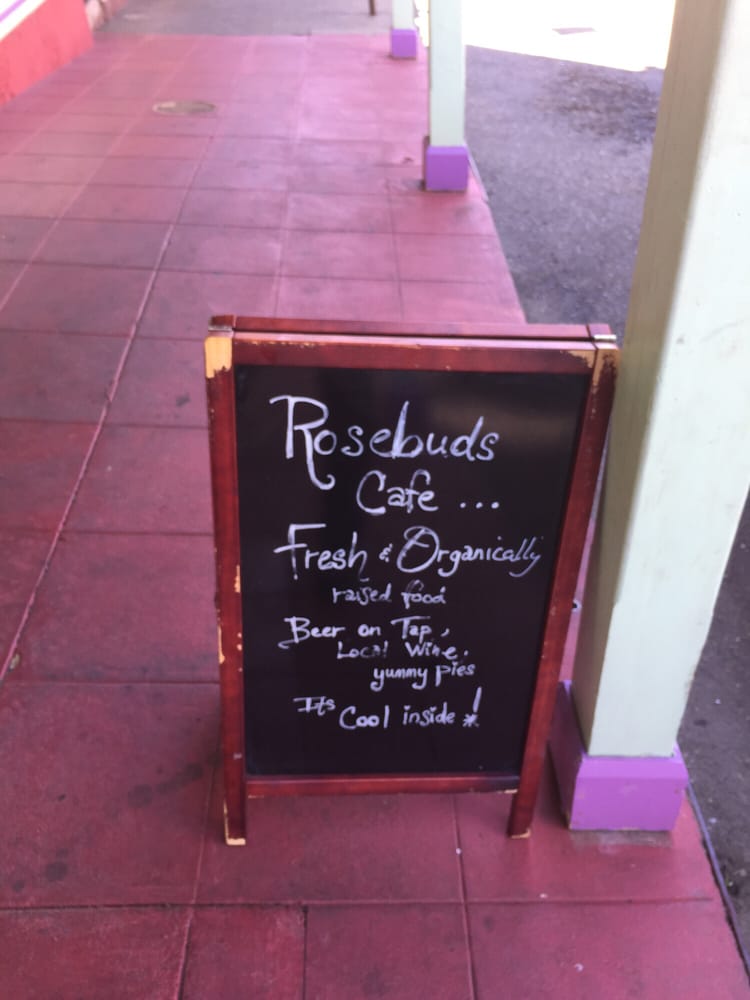 Rosebuds
Cafe ...
Fresh & Organically
raised food
Beer on Tap,
Local Wine.
yummy pies
Its Cool inside!